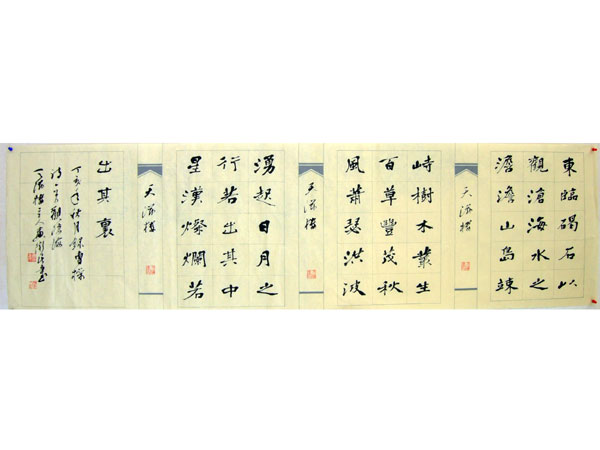 東臨碣石以
觀滄海水之
澹澹山島竦
峙樹木叢生
百草豐茂秋
風蕭瑟洪波
湧起日月之
行若出其中
星漢燦爛若
出其裏
丁亥年秋月錄曹操
詩一首觀滄海